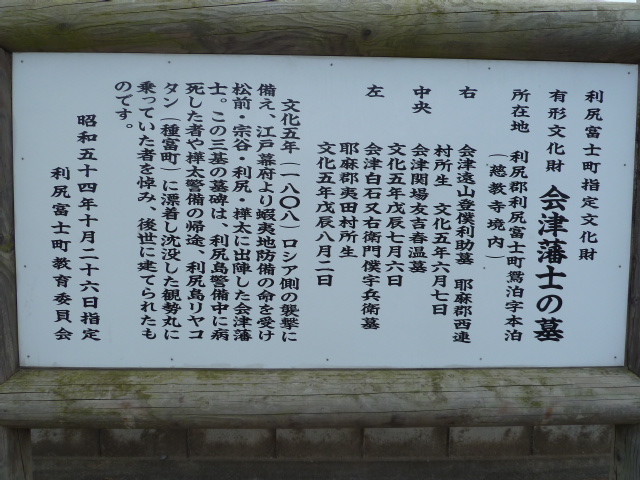 利尻富士町指定文化財
有形文化財 会津藩士の墓
所在地 利尻郡利尻富士町鴛泊字本泊
(慈教寺境内)
右 会津遠山登僕利助墓 耶麻郡西連
村所生 文化五年六月七日
中央 会津関場友吉春温墓
文化五年戊辰七月六日
左 会津白石又右衛門僕宇兵衛墓
耶麻郡夷田村所生
文化五年戊辰八月二日
文化五年(一八〇八)ロシア側の襲撃に
備え、江戸幕府より蝦夷地防備の命を受け
松前・宗谷・利尻・樺太に出陣した会津藩
士。この三基の墓碑は、利尻島警備中に病
死した者や樺太警備の帰途、利尻島リヤコ
タン(種富町)に漂着し沈没した観勢丸に
乗っていた者を悼み、後世に建てられたも
のです。
昭和五十四年十月二十六日指定
利尻富士町教育委員会